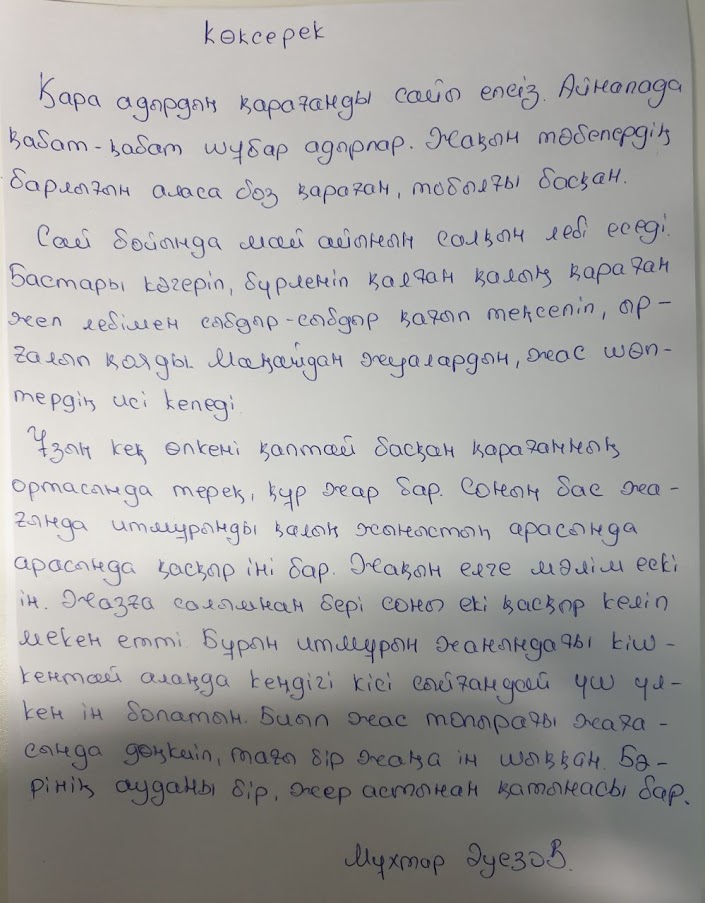 Көксерек
Қара адырдың қарағанды сайы елсіз. Айналада
қабат-қабат шұбар адырлар. Жақын төбелердің
барлығын аласа боз қараған, тобылғы басқан.
Сай бойында май айының салқын лебі еседі.
Бастары көгеріп, бүрленіп қалған қалың қараған
жел лебімен сыбдыр-сыбдыр қағып теңселіп, ыр-
ғалып қояды. Маңайдан жуалардын, жас шөп-
тердің исі келеді
Ұзын кең өлкені қаптай басқан қарағанның
ортасында терең, құр жар бар. Соның бас жа-
ғында итмұрынды қалың жыныстың арасында
арасында қасқыр іні бар. Жақын елге мәлім ескі
ін. Жазға салымнан бері соны екі қасқыр келіп
мекен етті. Бұрын итмұрын жанындағы кіш-
кентай алаңда кеңдігі кісі сыйғандай үш үл-
кен ін болатын. Биыл жас топырағы жаға-
сында дөңкиіп, тағы бір жаңа ін шыққан. Бә-
рінің ауданы бір, жер астынан қатынасы бар.
Мұхтар Әуезов.